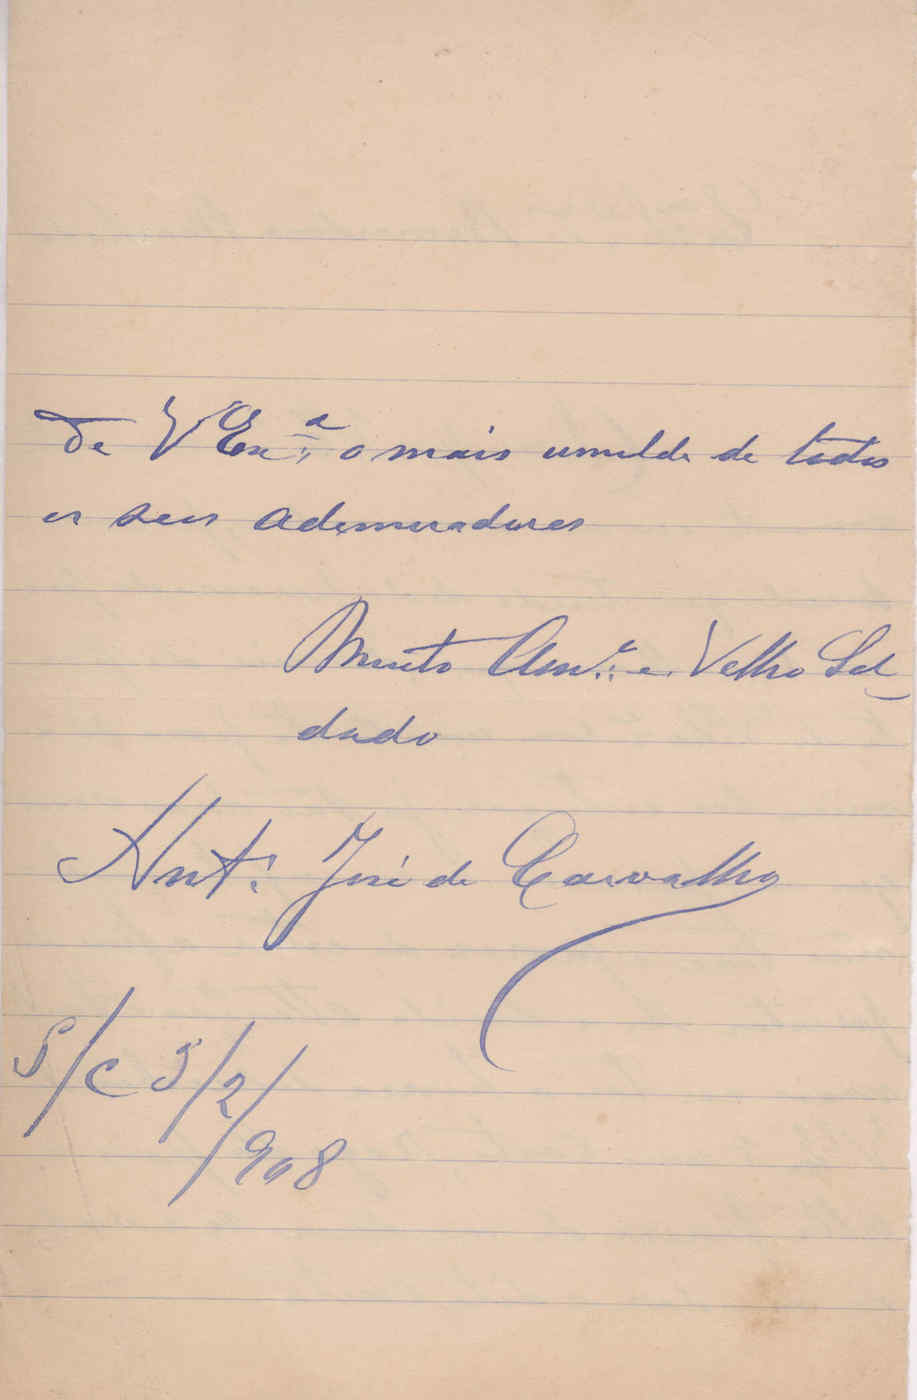 de V Exª, o mais umilde de todos
os seus ademeradores
Muito Amº e Velho Sol-
dado
Antº José de Carvalho
S/C 5/2/908